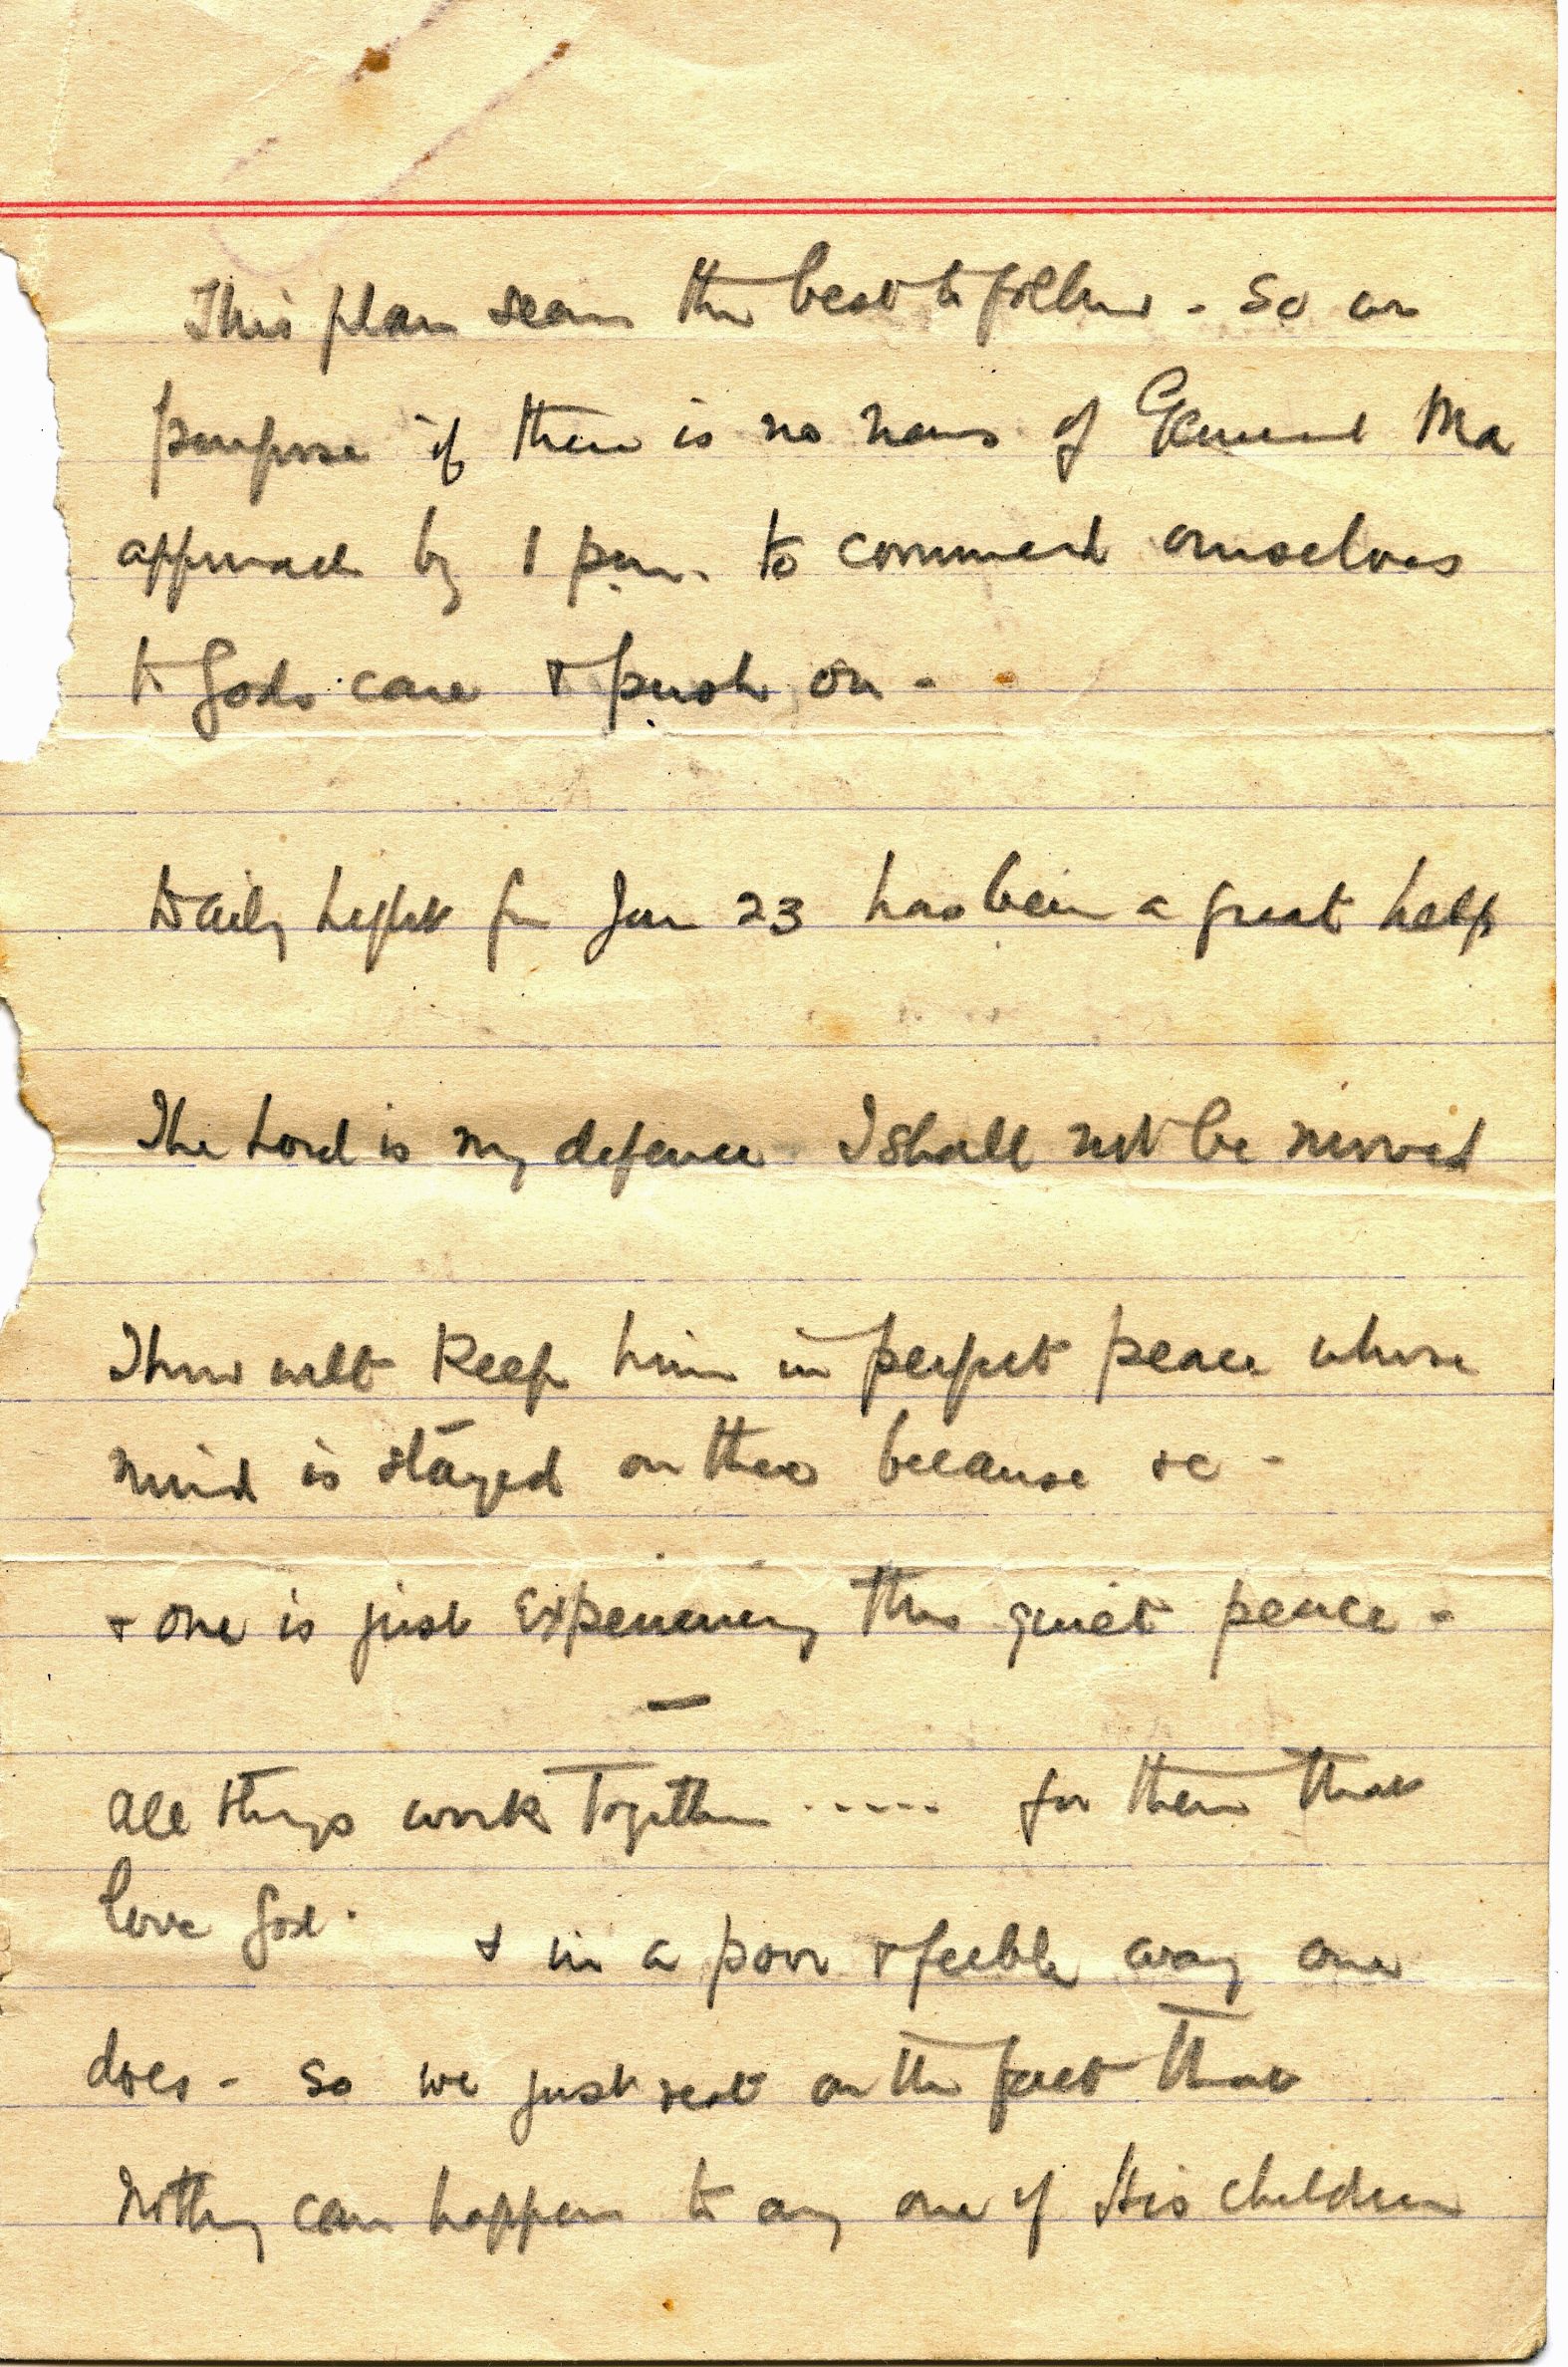 This plan seems the best to follow - so we
purpose if there is no news of General Ma
approach by 1 p.m. to commend ourselves
to Gods care & push on -
Daily Light for Jan 23 has been a great help
The Lord is my defence I shall not be moved
Thou wilt keep him in perfect peace whose
mind is stayed on thee because &c -
& one is just experiencing this quiet peace -
All things work together ..... for them that
love God. & in a poor & feeble way one
does - so we just rest on the fact that
nothing can happen to any one of His children